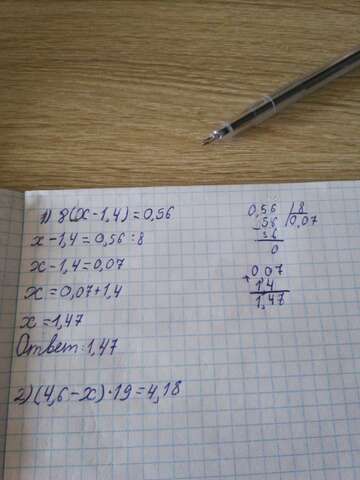 1) 8(x-1,4)=0,56
x-1,4=0,56:8
x-1,4=0,07
x=0,07+1,4
x=1,47
Ответ: 1,47
2) (4,6-x)·19=4,18
0,56 | 8
-56 | 0,07
56
0
0,07
+ 1,4
1,47